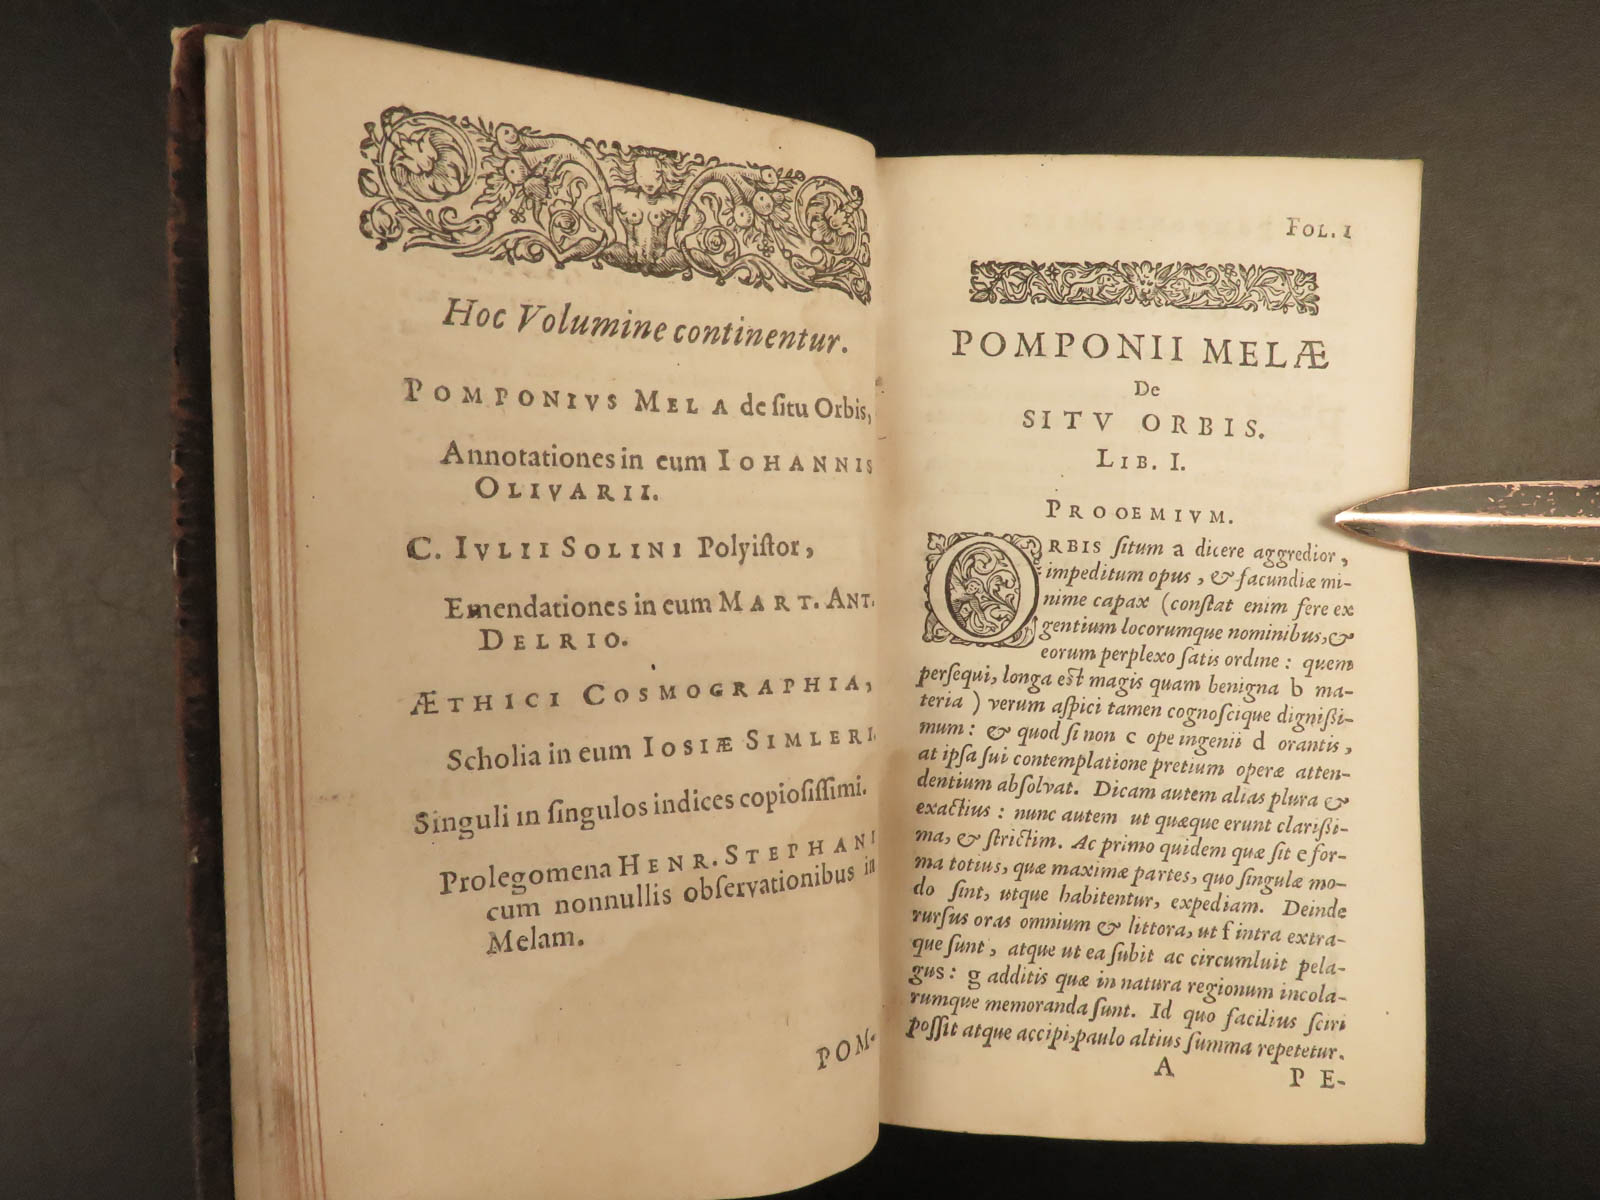 Hoc Volumine continentur.
POMPONIVS MELA de ſitu Orbis,
Annotationes in eum IOHANNIS
OLIVARII.
C. IVLII SOLINI Polyiſtor,
Emendationes in eum MART. ANT.
DELRIO.
ÆTHICI COSMOGRAPHIA,
Scholia in eum IOSIÆ SIMLERI.
Singuli in ſingulos indices copioſiſſimi.
Prolegomena HENR. STEPHANI
cum nonnullis obſervationibus in
Melam.
POM-
FOL. 1
POMPONII MELÆ
De
SITV ORBIS.
LIB. I.
PROOEMIVM.
ORBIS ſitum a dicere aggredior,
impeditum opus, & facundiæ mi-
nime capax (conſtat enim fere ex
gentium locorumque nominibus, &
eorum perplexo ſatis ordine: quem
perſequi, longa eſt magis quam benigna b ma-
teria) verum aſpici tamen cognoſcique digniſſi-
mum: & quod ſi non c ope ingenii d orantis,
at ipſa ſui contemplatione pretium operæ atten-
dentium abſolvat. Dicam autem alias plura &
exactius: nunc autem ut quæque erunt clariſſi-
ma, & ſtrictim. Ac primo quidem quæ ſit e for-
ma totius, quæ maximæ partes, quo ſingulæ mo-
do ſint, utque habitentur, expediam. Deinde
rurſus oras omnium & littora, ut f intra extra-
que ſunt, atque ut ea ſubit ac circumluit pela-
gus: g additis quæ in natura regionum incola-
rumque memoranda ſunt. Id quo facilius ſciri
poſſit atque accipi, paulo altius ſumma repetetur.
A
PE-